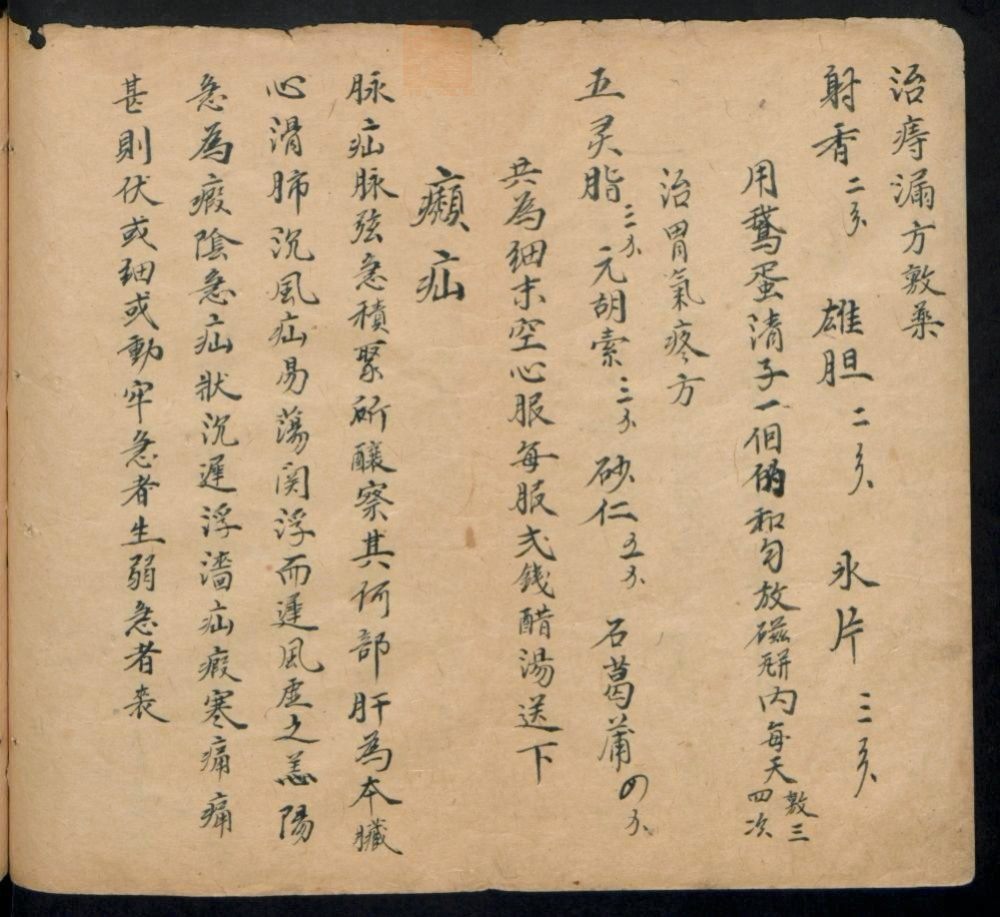 治痔漏方敷薬
射香二分 雄胆二分 氷片三分
用鵝蛋清子一個的和匀放磁瓶内每天敷三四次
治胃氣疼方
五灵脂三分元胡索三分砂仁五分石菖蒲四分
共為細末空心服每服弍錢醋湯送下
癩疝
脉疝脉弦急積聚所釀察其何部肝為本臟
心滑肺沉風疝昜蕩関浮而遲風虚之恙陽
急為瘕陰急疝狀沉遲浮濇疝瘕寒痛痛
甚則伏或細或動牢急者生弱急者丧